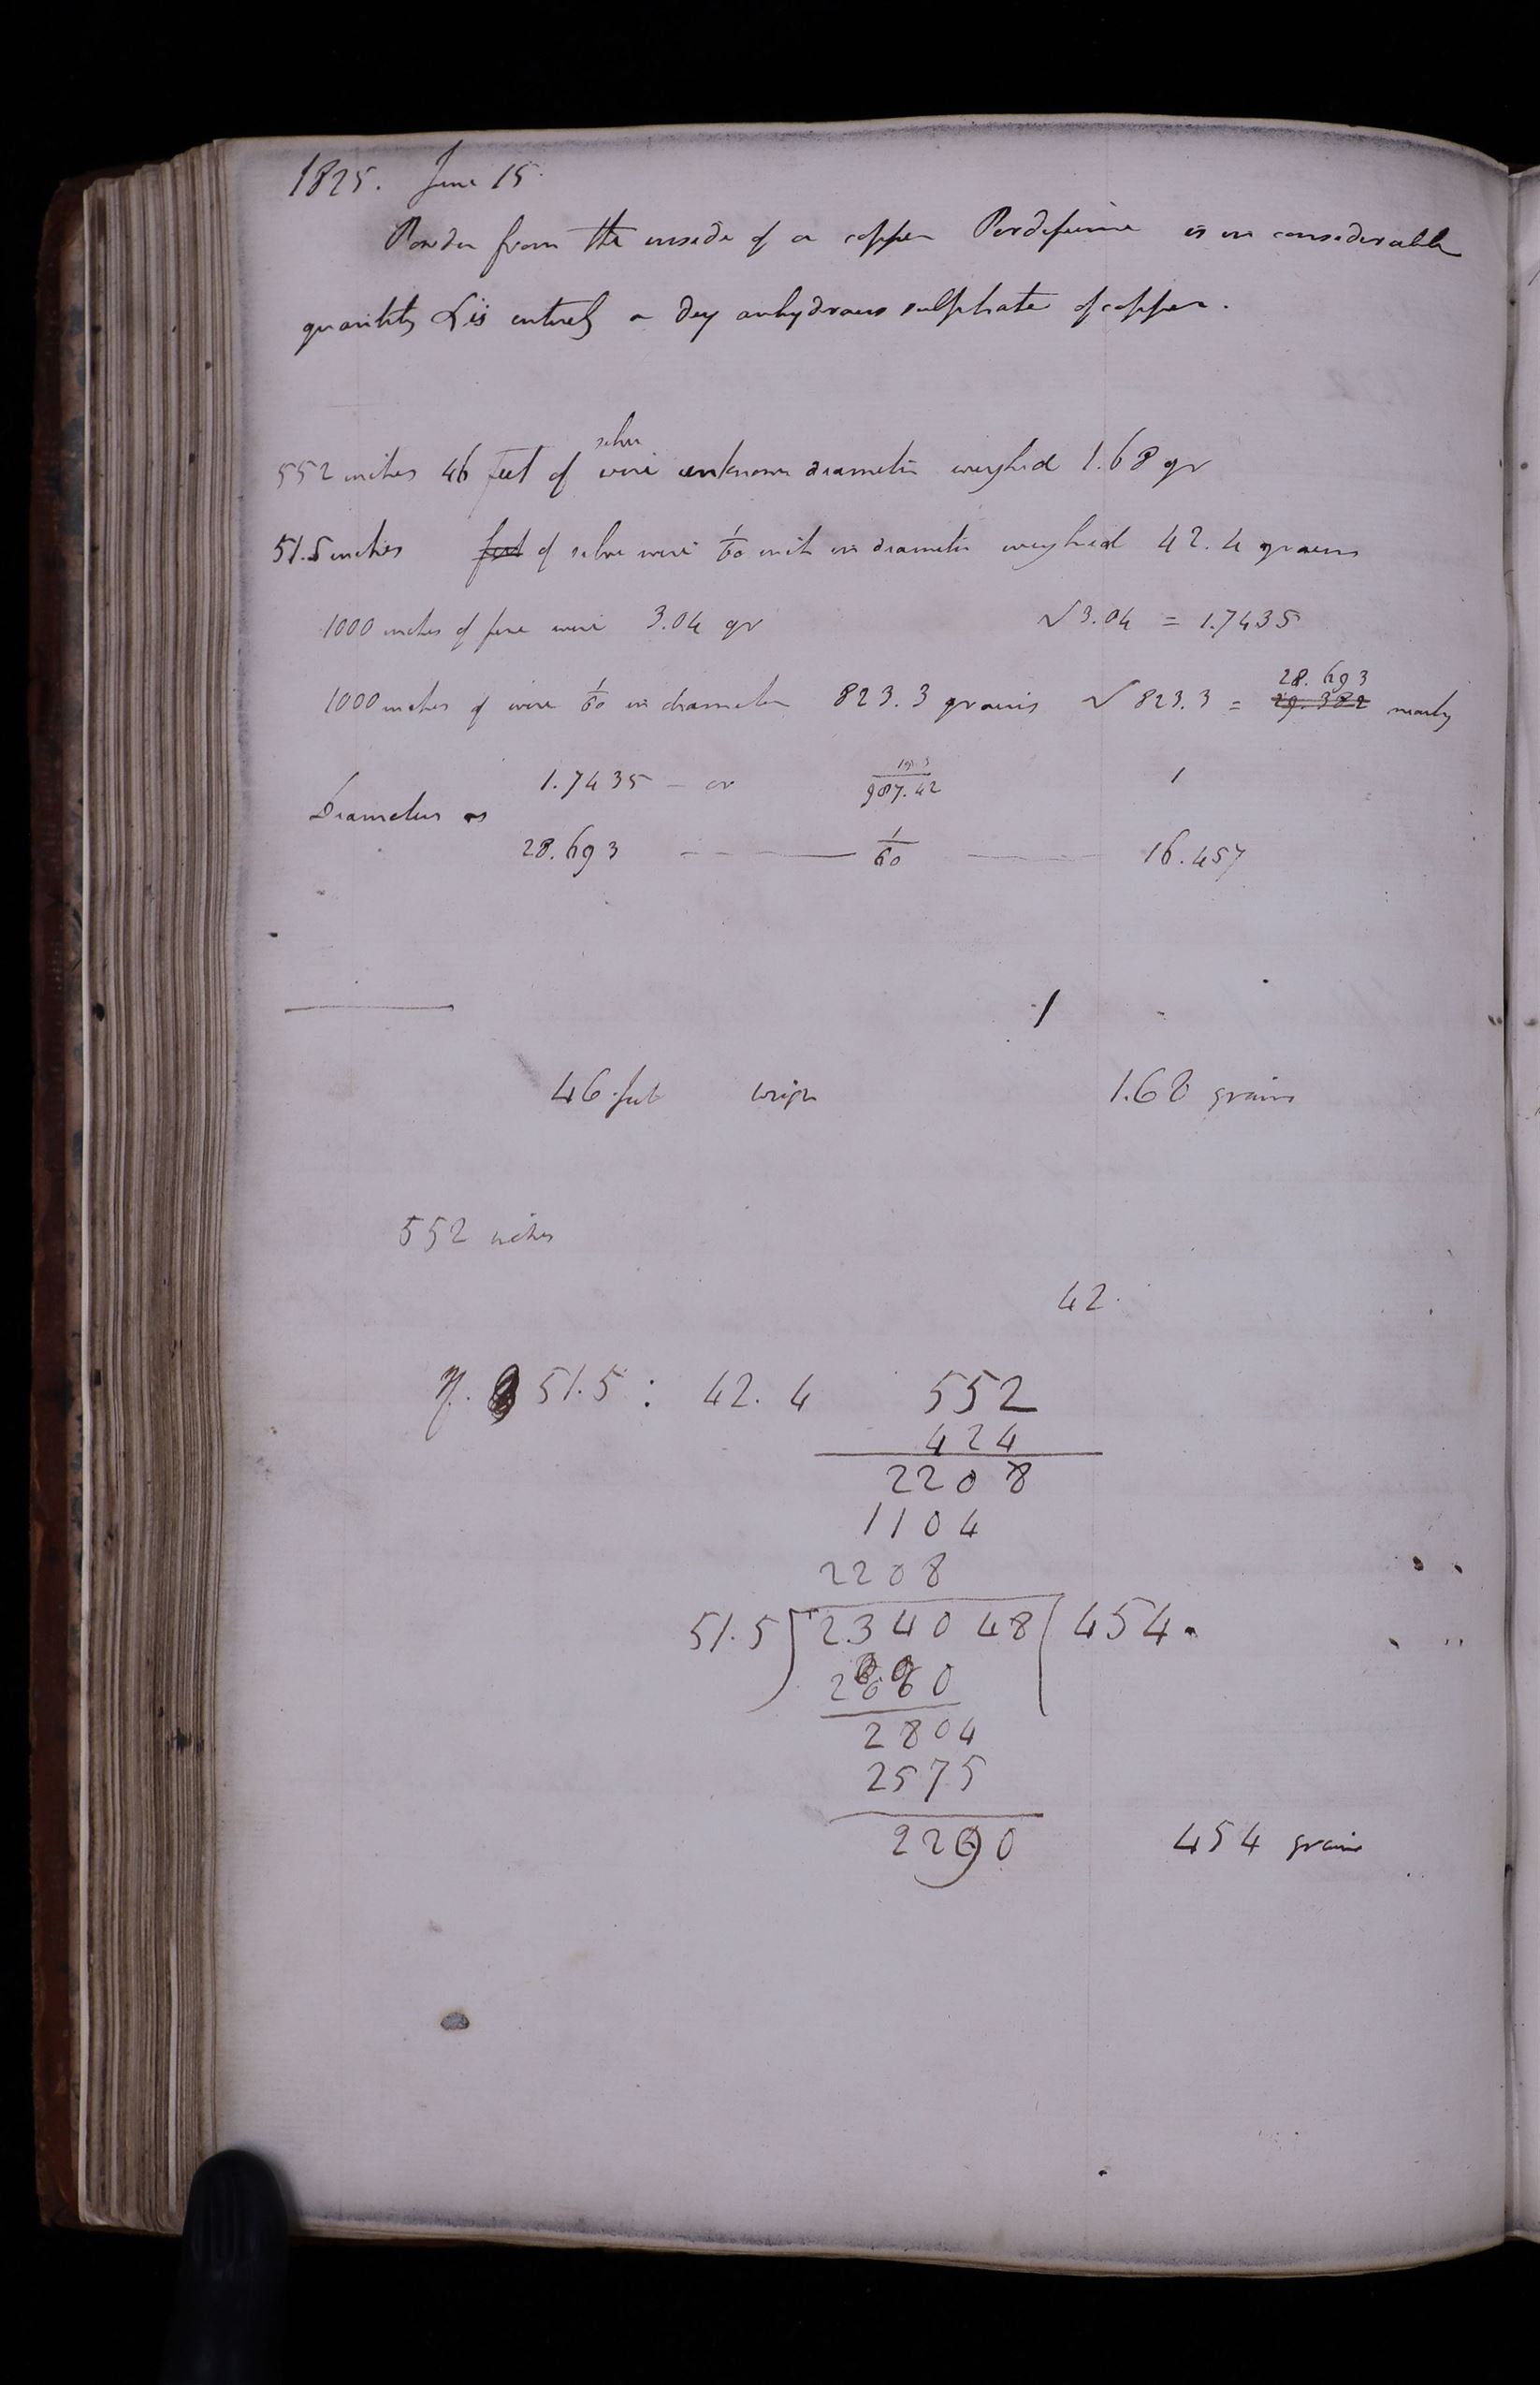 1825. June 15.
Powder from the inside of a copper Perdifume is in considerable
quantity & is entirely a dry anhydrous sulphate of copper.
silver
552 inches 46 feet of wire unknown diameter weighed 1.68 gr
51.5 inches feet of silver wire 1/60 inch in diameter weighed 42.4 grains
1000 inches of fine wire 3.04 gr √3.04 = 1.7435
28.693
1000 inches of wire 1/60 in diameter 823.3 grains √823.3 = 29.382 nearly
1.7435 - or 987.42 1
Diameters as
28.693 1/60 16.457
1
46 feet weigh 1.68 grains
552 inches
42.
If 51.5 : 42.4 552
424
2208
1104
2208
51.5) 234048 (454.
2060
2804
2575
2290 454 grains